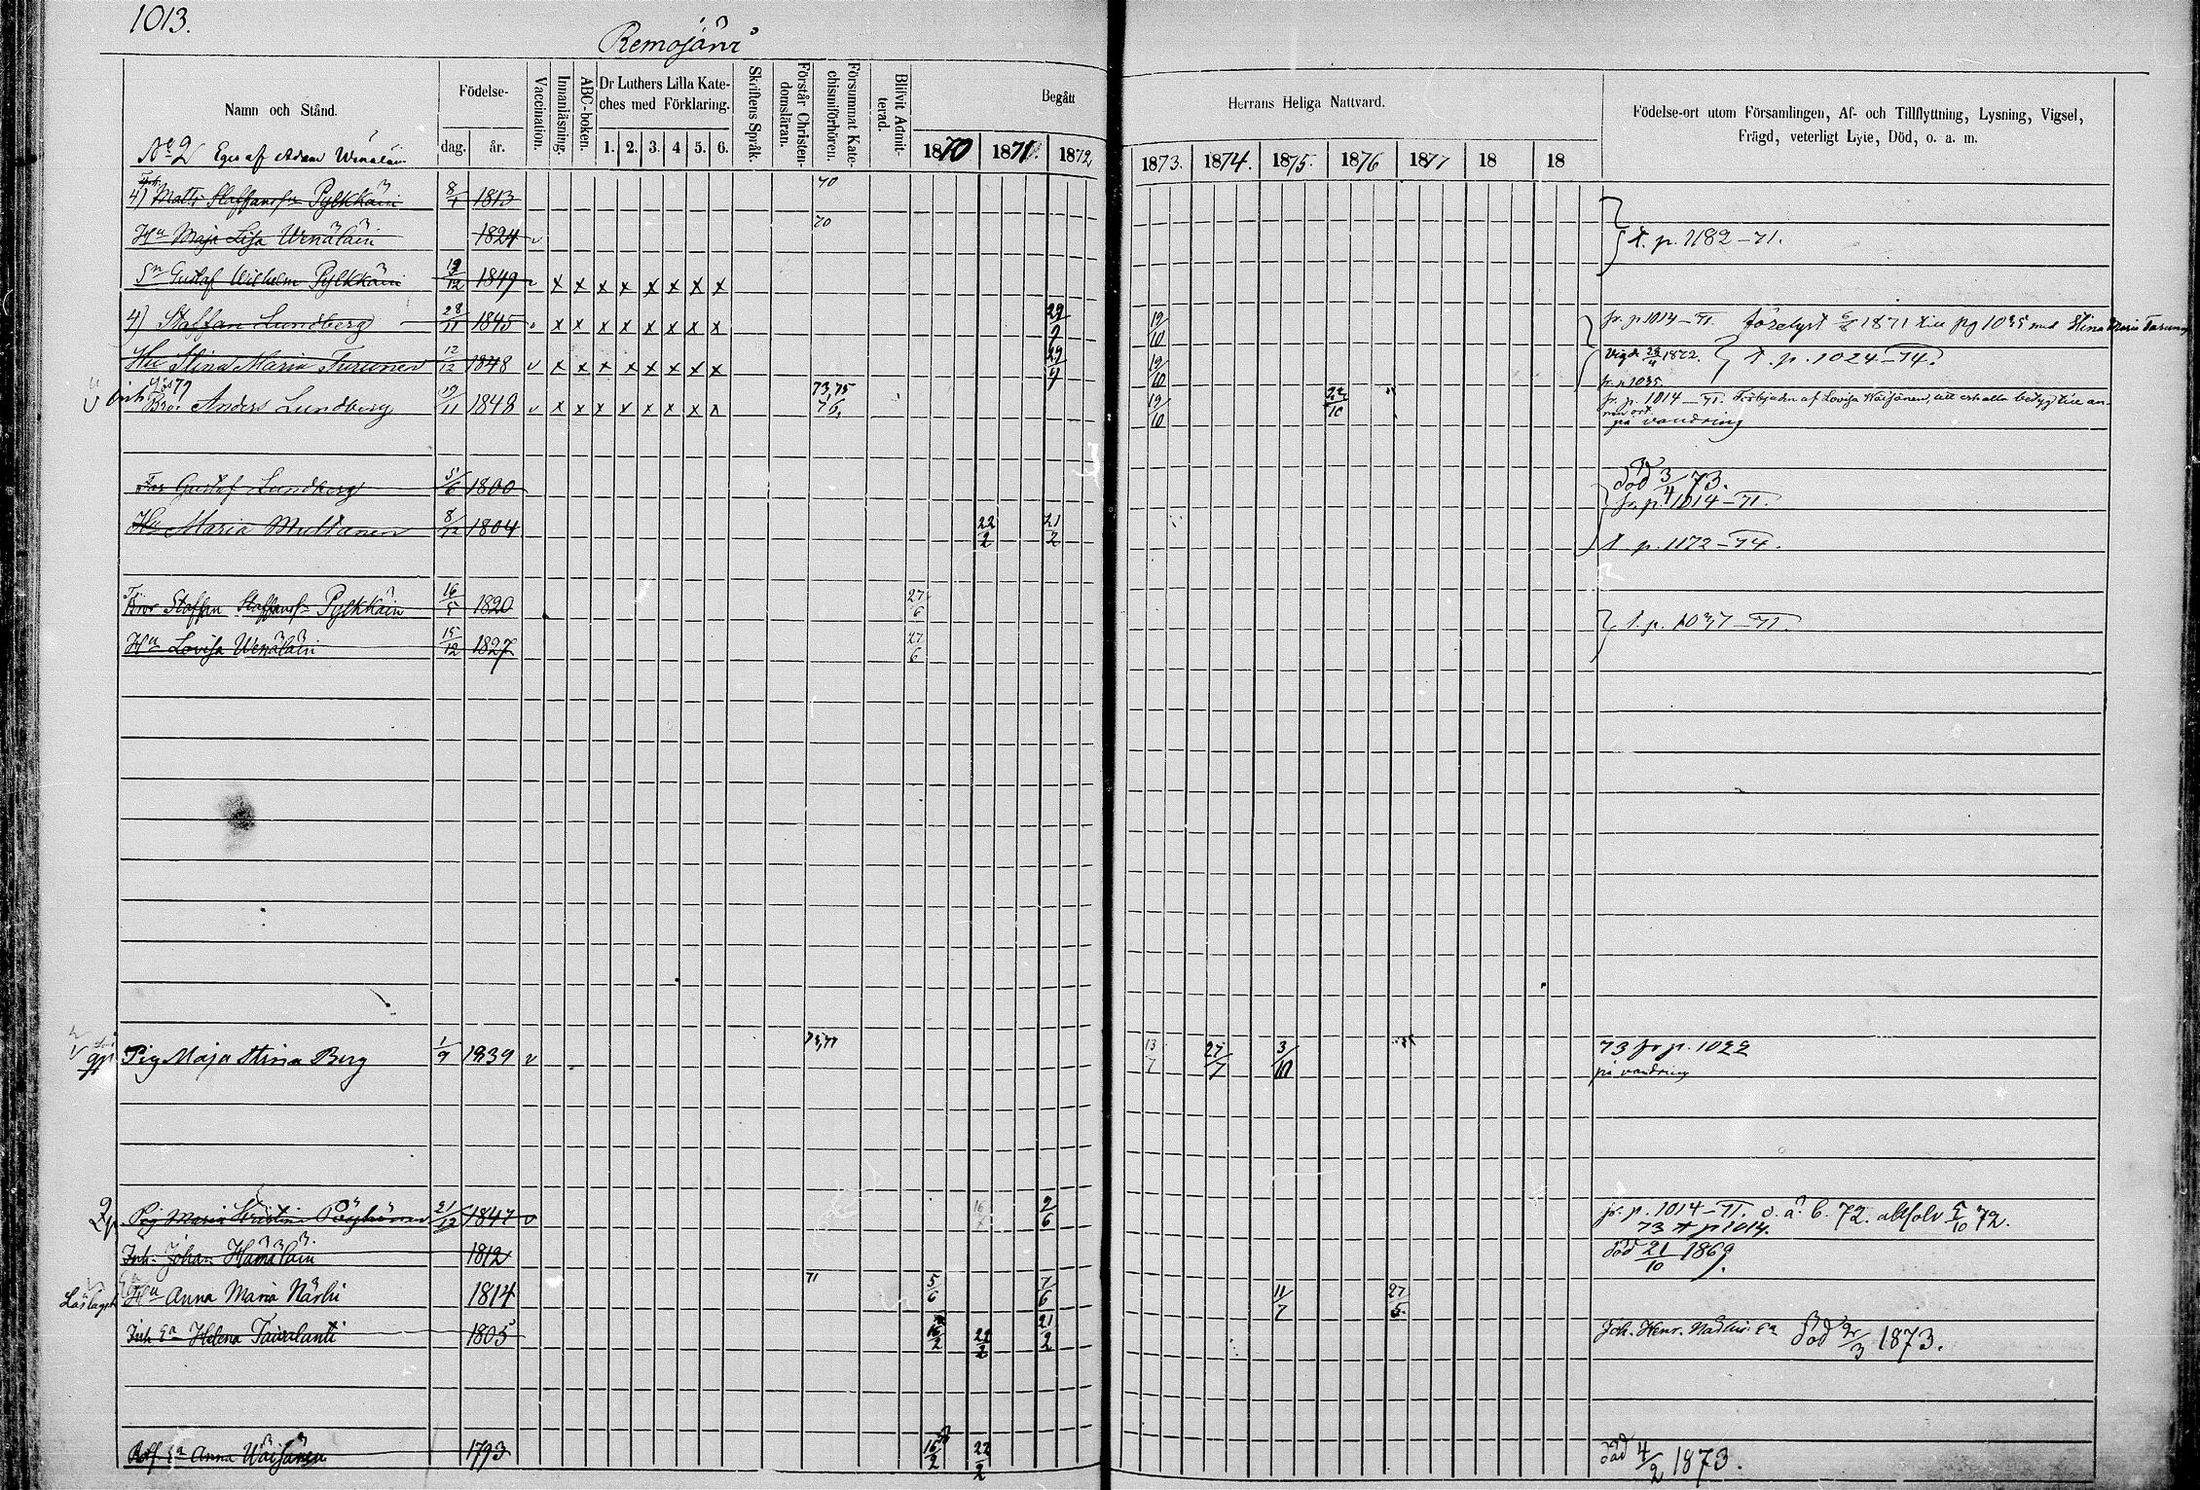 1013.
Remojäni
Namn och Stånd.
Födelse-
dag.
år.
Vaccination.
Innanläsning.
ABC-boken.
Dr Luthers Lilla Kate-
ches med Förklaring.
1. 2. 3. 4 5. 6.
Skriftens Språk.
Förstår Christen-
domsläran.
Försummat Kate-
chismiförhören.
Blifvit Admit-
terad.
Begått
Herrans Heliga Nattvard.
1870 1871. 1872
1873. 1874. 1875. 1876 1877 18 18
Födelse-ort utom Församlingen, Af- och Tillflyttning, Lysning, Vigsel,
Frägd, veterligt Lyte, Död, o. a. m.
No 2 Eges af Adam Wenäläin
4) Matts Staffanss Pylkkäin 8/1 1813 70
Hu Maja Lisa Wenäläin 1824 v 70 t. p. 1182-71.
Sn Gustaf Wilhelm Pylkkäin 19/12 1849 v x x x x x x x x
4) Staffan Lundberg 28/11 1845 v x x x x x x x x 29/7 19/10 fr. p 1014-71. förelyst 1871 till pg 1035 med Stina Maria Turunen
Hu Stina Maria Turunen 12/12 1848 v x x x x x x x x 29/7 19/10 Vigde 1872. t. p. 1024-74.
fr. p 1035.
Bror Anders Lundberg 19/11 1848 v x x x x x x x x 73,75 76, 19/10 22/10 fr. p. 1014-71. Förbjuden af Lovisa Wäisänen, till erhålla betyg till an-
nan ort.
på vandring
Far Gustaf Lundberg 5/6 1800 död 3/4 73.
fr. p. 1014-71.
Hu Maria Multanen 8/12 1804 22/2 21/2 t. p. 1172-74.
Bror Staffan Staffanss Pylkkäin 16/5 1820 27/6 t. p. 1037-71.
Hu Lovisa Wenäläin 15/12 1827 27/6
Pig Maja Stina Berg 1/9 1839 v 13/7 27/7 3/10 73 fr p. 1022
på vandring
Pig Maria Kristina 21/12 1847 v 2/6 fr. p. 1014-71. o. ä. b. 72. absolv 5/10 72.
73 t p 1014.
Inh. Johan Hämäläin 1812 död 21/10 1869.
Hu Anna Maria Närhi 1814 71 5/6 7/6 11/7 27/5
Inh Ea Helena Taivalanti 1805 16/2 22/2 21/2 Joh. Henr. Ea död 2/3 1873.
Ea Anna Wäisänen 1793 16/2 22/2 död 4/2 1873.